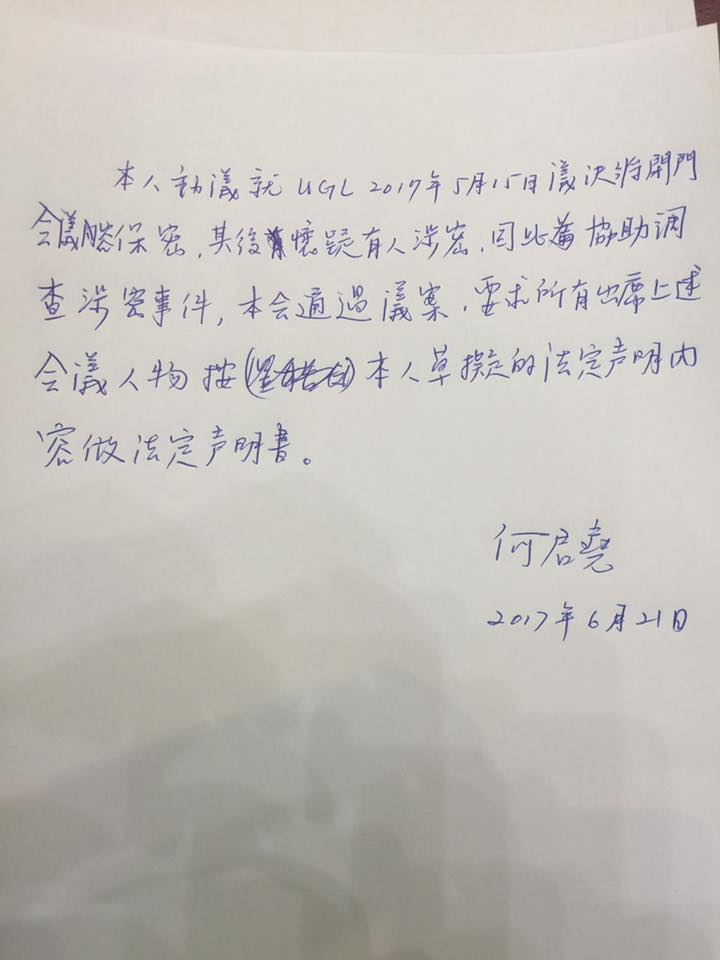 本人動議就 UGL 2017年5月15日議決將閉門
会議保密,其後懷疑有人涉密,因此為協助調
查涉密事件,本会通過議案,要求所有出席上述
会議人物按本人草擬的法定声明内
容做法定声明書。
何君堯
2017年6月21日